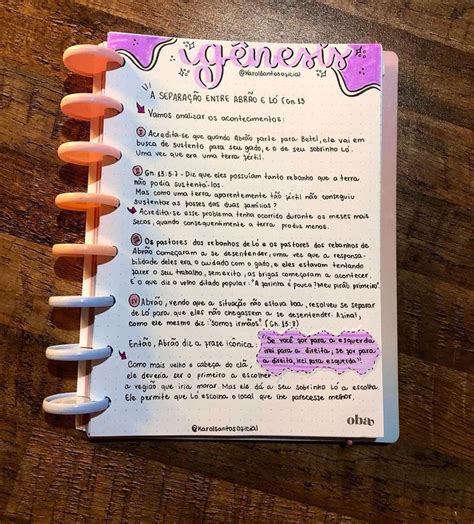 gênesis
@Karolsantosoficial
A SEPARAÇÃO ENTRE ABRÃO E LÓ (Gn.13
Vamos analizar os acontecimentos:
I Acredita-se que quando Abrão parte para Betel, ele vai em
busca de sustento para seu gado, e o de seu sobrinho Ló.
Uma vez que era uma terra fértil.
II Gn. 13:6-7 - Diz que eles possuíam tanto rebanho que a terra
não podia sustentá-los.
Mas como uma terra aparentemente tão fértil não conseguiu
sustentar as posses das duas famílias?
Acredita-se esse problema tenha ocorrido durante os meses mais
secos, quando consequentimente a terra produs menos.
III Os pastores dos rebanhos de Ló e os pastores dos rebanhos de
Abrão começaram a se desentender, uma vez que a responsa-
bilidade deles era o cuidado com o gado, e eles estavam tentando
fazer o seu trabalho, sem exito, as brigas começaram a acontecer.
É o que diz o velho ditado popular: "A farinha é pouca? Meu pirão primeiro".
IV Abrão, vendo que a situação não estava boa, resolveu se separar
de Ló para que eles não chegassem a se desentender. Afinal,
como ele mesmo diz: "Somos irmãos" (Gn.13:8)
Então, Abrão diz a frase icônica:
"Se você for para a esquerda
irei para a direita; se for para
a direita, irei para esquerda!!
Como mais velho e cabeça do clã,
ele deveria ser o primeiro a escolher
a região que iria morar. Mas ele dá a seu sobrinho Ló a escolha
Ele permite que Ló escolha o local que lhe parecesse melhor.
@Karolsantosoficial
oba